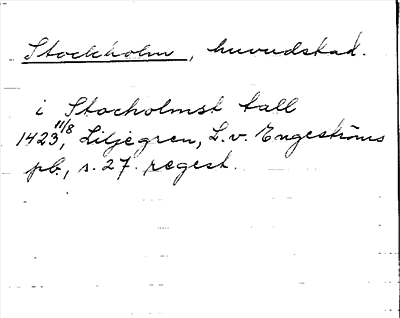 Stockholm, huvudskad.
i Stocholmsk tall
1423 11/8, Liljegren, L. v. Engeströms
pb., s. 27. regest.